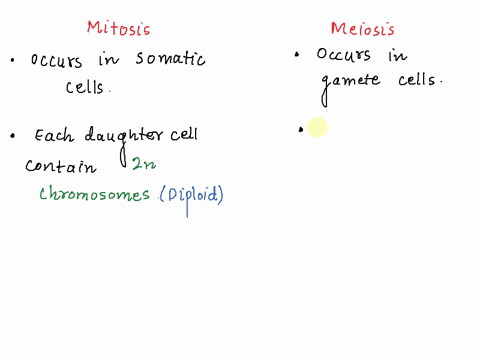 Mitosis
• Occurs in somatic
cells.
• Each daughter cell
contain 2n
chromosomes (Diploid)
Meiosis
• Occurs in
gamete cells.
•